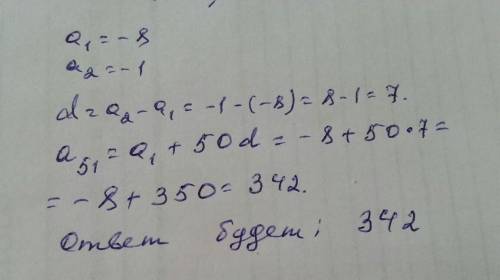 a₁ = -8
a₂ = -1
d = a₂ - a₁ = -1 - (-8) = 8 - 1 = 7.
a₅₁ = a₁ + 50d = -8 + 50·7 =
= -8 + 350 = 342.
Ответ будет: 342